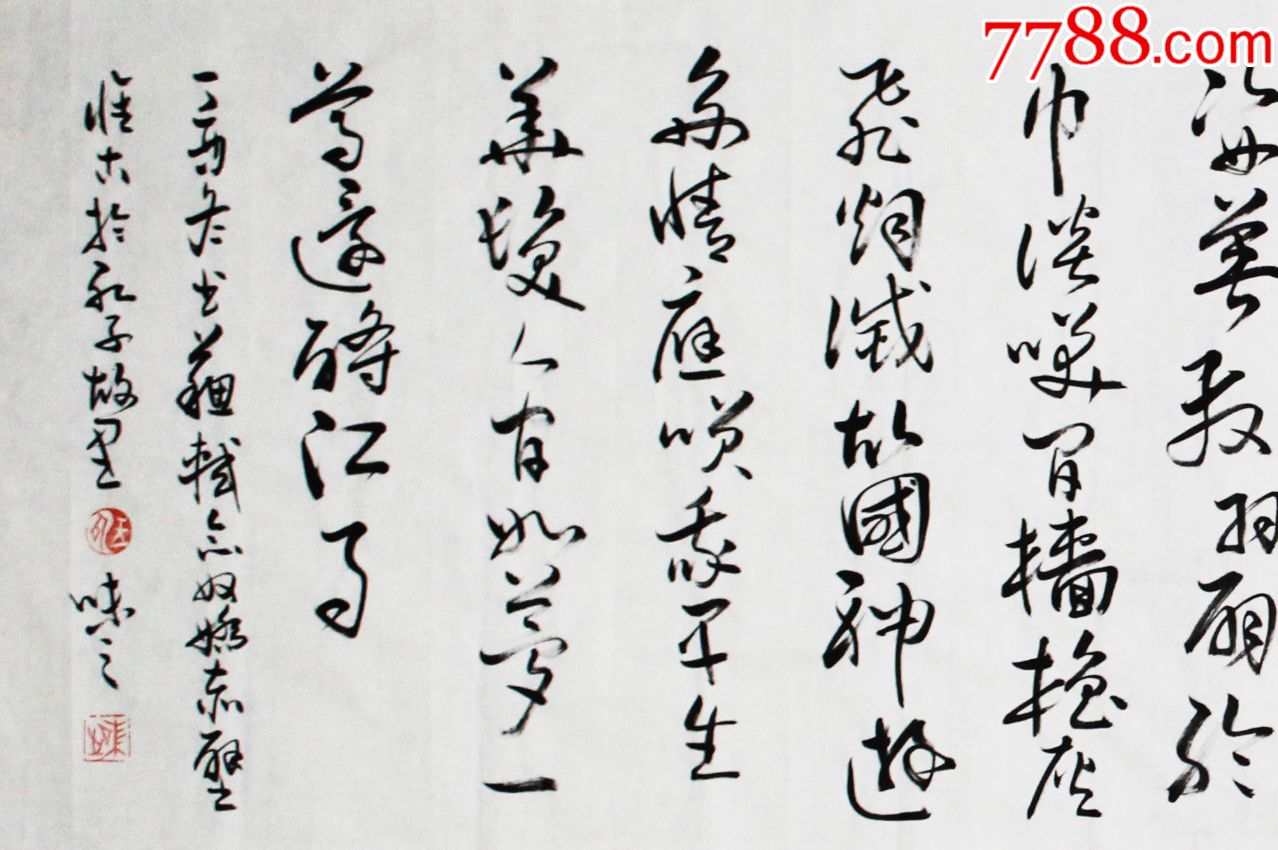 7788.com
姿英發羽扇綸
巾談咲間檣櫓灰
飛烟滅故國神遊
多情應咲我早生
華髮人間如夢一
尊還酹江月
丁酉冬書蘇軾念奴嬌赤壁
懷古於孔子故里 味之